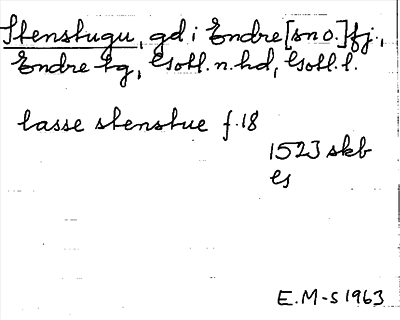 Stenstugu, gd i Endre [sn o.] fj.,
Endre tg, Gotl. n. hd, Gotl. l.
lasse stenstue f. 18
1523 skb
es
E.M-s 1963